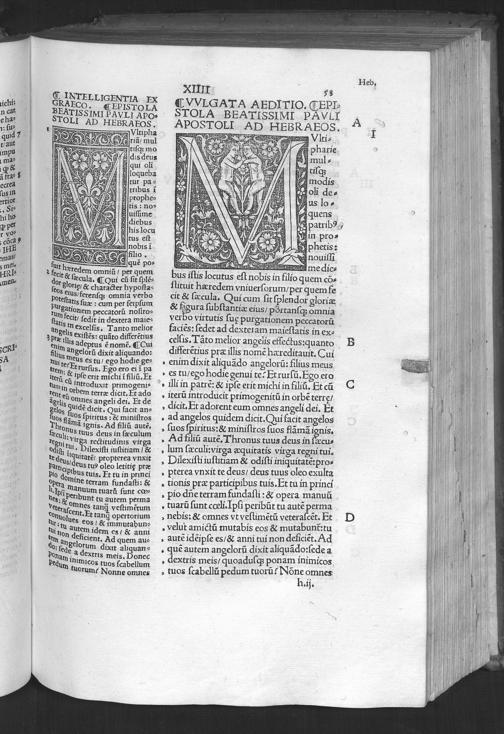 XIIII
58
Heb.
¶ INTELLIGENTIA EX
GRAECO. ¶EPISTOLA
BEATISSIMI PAVLI APO-
STOLI AD HEBRAEOS.
M
Vltipha
riā: mul
tisq; mo
dis deus
qui oli
loqueba
tur pa-
tribus ī
prophe-
tis: nouissime
diebus
his locu
tus est
nobis ī
filio.
quē po-
suit hæredem omniū/ per quem
fecit & sæcula. ¶ Qui cū sit splē-
dor gloriæ & character hyposta-
seos eius/ ferensq; omnia verbo
potestatis suæ: cum per seipsum
purgationem peccatorū nostro-
rum fecit/ sedit in dextera maie-
statis in excelsis. Tanto melior
angelis existēs: quāto differētius
præ illis adeptus ē nomē. ¶ Cui
enim angelorū dixit aliquando:
filius meus es tu/ ego hodie ge-
nui te: Et rursus. Ego ero ei ī pa
trem: & ipse erit michi ī filiū. Et
cum introducit primogeni-
tum in orbem terræ dicit. Et ado
rent eū omnes angeli dei. Et de
angelis quidē dicit. Qui facit an-
gelos suos spiritus: & ministros
suos flāmā ignis. Ad filiū autē.
Thronus tuus deus in sæculum
sæculi: virga rectitudinis virga
regni tui. Dilexisti iustitiam/ &
odisti iniquitatē: propterea vnxit
te deus/deus tuus oleo letitię præ
participibus tuis. Et tu in princi
pio domine terram fundasti: &
opera manuum tuarū sunt cœ-
li. Ipsi peribunt tu autem perma
nes: & omnes tanq̄ vestimētum
veterascent. Et tanq̄ opertorium
conuolues eos/ & mutabun-
tur: tu autem idem es/ & anni
tui non deficient. Ad quem au-
tem angelorum dixit aliquan-
do: sede a dextris meis. Donec
ponam inimicos tuos scabellum
pedum tuorum/ Nonne omnes
¶VVLGATA AEDITIO. ¶EPI-
STOLA BEATISSIMI PAVLI
APOSTOLI AD HEBRAEOS.
A
I
M
Vlti-
pharie
mul-
tisq;
modis
oli de-
us lo-
quens
patrib9
in pro-
phetis:
nouissi
me die-
bus istis locutus est nobis in filio quem cō-
stituit hæredem vniuersorum/ per quem fe
cit & sæcula. Qui cum sit splendor gloriæ
& figura substantiæ eius/ portansq; omnia
verbo virtutis suę purgationem peccatorū
faciēs: sedet ad dexteram maiestatis in ex-
celsis. Tāto melior angelis effectus: quanto
B
differētius præ illis nomē hæreditauit. Cui
enim dixit aliquādo angelorū: filius meus
es tu/ ego hodie genui te? Et rursū. Ego ero
illi in patrē: & ipse erit michi in filiū. Et cū
C
iterū introducit primogenitū in orbē terrę/
dicit. Et adorent eum omnes angeli dei. Et
ad angelos quidem dicit. Qui facit angelos
suos spiritus: & ministros suos flāmā ignis.
Ad filiū autē. Thronus tuus deus in sæcu-
lum sæculi: virga æquitatis virga regni tui.
Dilexisti iustitiam & odisti iniquitatē: pro-
pterea vnxit te deus/ deus tuus oleo exulta
tionis præ participibus tuis. Et tu in princi
pio dn̄e terram fundasti: & opera manuū
tuarū sunt cœli. Ipsi peribūt tu autē perma
nebis: & omnes vt vestimētū veterascēt. Et
D
velut amictū mutabis eos & mutabunť: tu
autē idē ipse es/ & anni tui non deficiēt. Ad
quē autem angelorū dixit aliquādo: sede a
dextris meis/ quoadusq; ponam inimicos
tuos scabellū pedum tuorū/ Nōne omnes
h.ij.